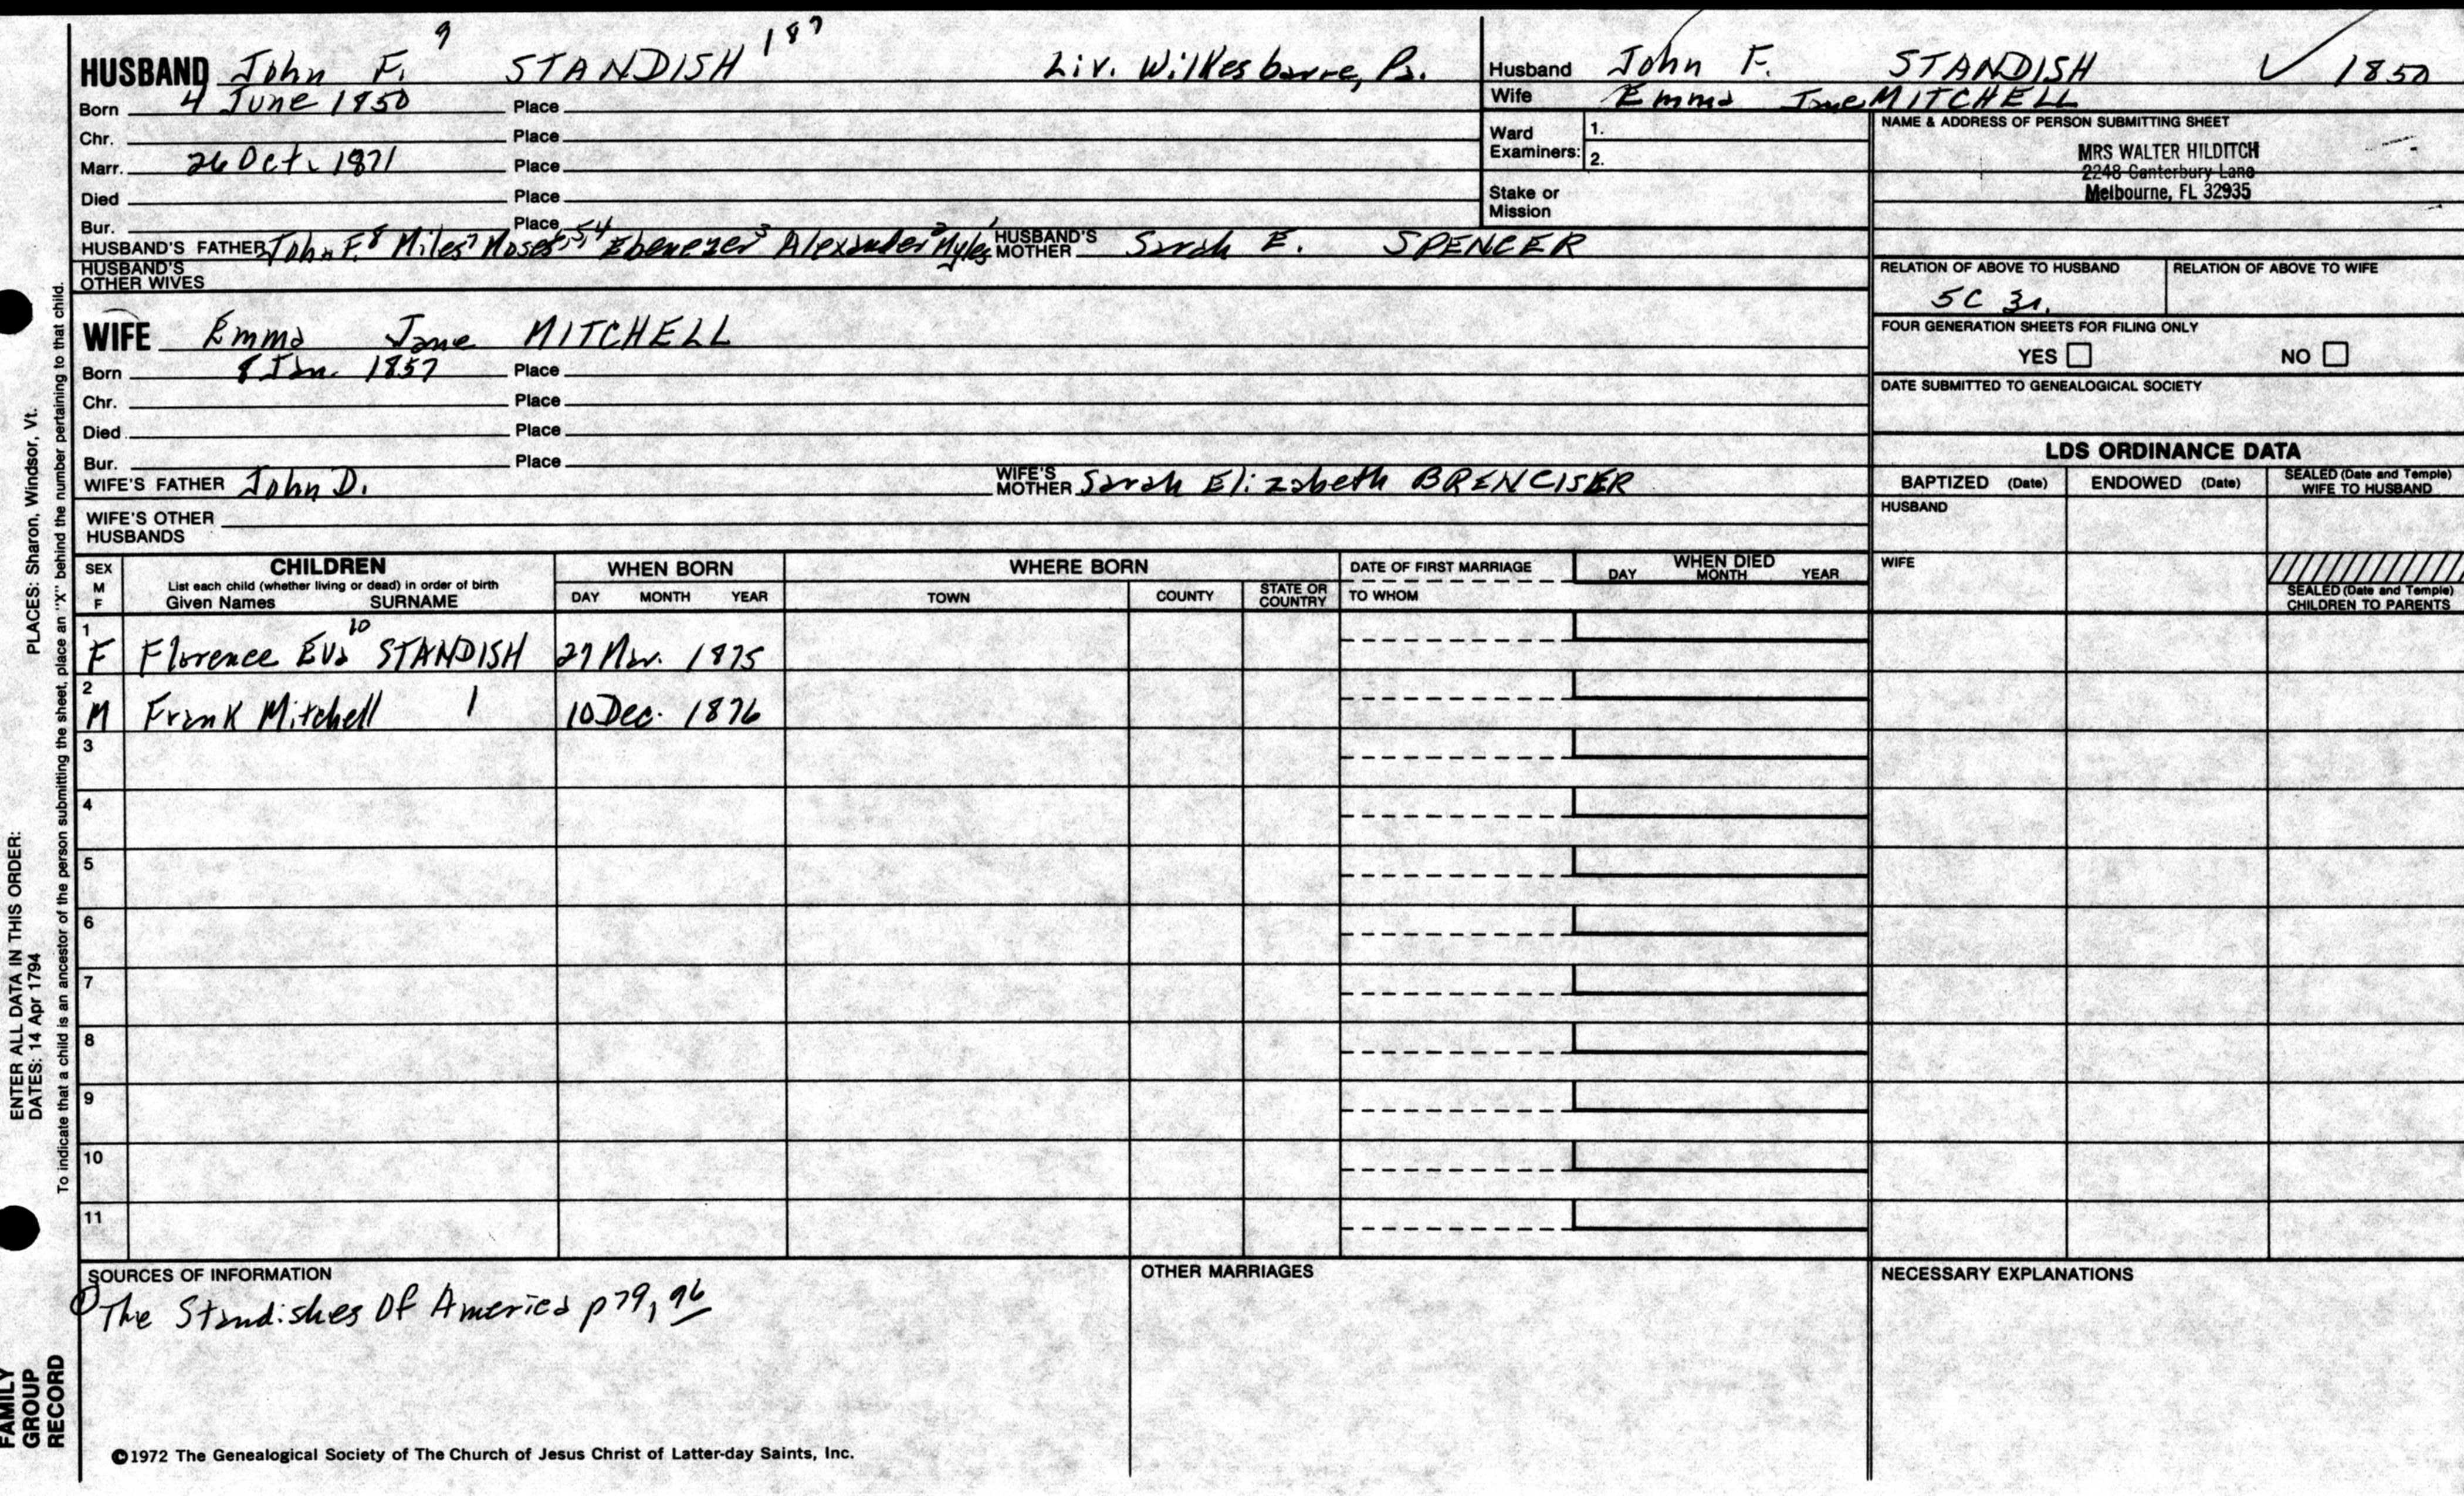 HUSBAND John F. 9 STANDISH 187 Liv. Wilkesbarre, Pa.
Born 4 June 1850 Place
Chr. Place
Marr. 26 Oct. 1871 Place
Died Place
Bur. Place
HUSBAND'S FATHER John F.8 Miles7 Moses6,5,4 Ebenezer3 Alexander2 Myles1 HUSBAND'S MOTHER Sarah E. SPENCER
HUSBAND'S OTHER WIVES
WIFE Emma Jane MITCHELL
Born 8 Jan. 1857 Place
Chr. Place
Died Place
Bur. Place
WIFE'S FATHER John D. WIFE'S MOTHER Sarah Elizabeth BRENCISER
WIFE'S OTHER HUSBANDS
Husband John F. STANDISH ✓ 1850
Wife Emma Jane MITCHELL
Ward Examiners: 1.
2.
Stake or Mission
NAME & ADDRESS OF PERSON SUBMITTING SHEET
MRS WALTER HILDITCH
2248 Canterbury Lane
Melbourne, FL 32935
RELATION OF ABOVE TO HUSBAND RELATION OF ABOVE TO WIFE
5C 3r.
FOUR GENERATION SHEETS FOR FILING ONLY
YES NO
DATE SUBMITTED TO GENEALOGICAL SOCIETY
LDS ORDINANCE DATA
BAPTIZED (Date) ENDOWED (Date) SEALED (Date and Temple) WIFE TO HUSBAND
HUSBAND
WIFE
SEALED (Date and Temple) CHILDREN TO PARENTS
SEX M F
CHILDREN
List each child (whether living or dead) in order of birth
Given Names SURNAME
WHEN BORN
DAY MONTH YEAR
WHERE BORN
TOWN COUNTY STATE OR COUNTRY
DATE OF FIRST MARRIAGE
TO WHOM
WHEN DIED
DAY MONTH YEAR
1 F Florence Eva 10 STANDISH 27 Mar. 1875
2 M Frank Mitchell 10 Dec. 1876
3
4
5
6
7
8
9
10
11
SOURCES OF INFORMATION
① The Standishes Of America p79, 96
OTHER MARRIAGES
NECESSARY EXPLANATIONS
©1972 The Genealogical Society of The Church of Jesus Christ of Latter-day Saints, Inc.
ENTER ALL DATA IN THIS ORDER:
DATES: 14 Apr 1794 PLACES: Sharon, Windsor, Vt.
To indicate that a child is an ancestor of the person submitting the sheet, place an "X" behind the number pertaining to that child.
FAMILY
GROUP
RECORD